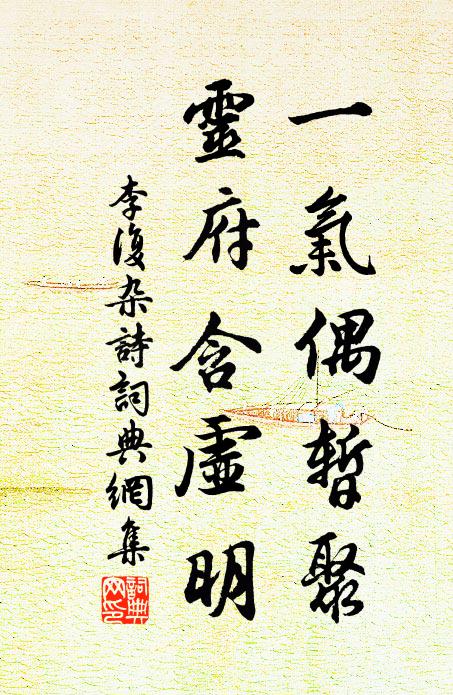 一氣偶暫聚
靈府含虛明
李復杂詩詞典網集
詞典
网印